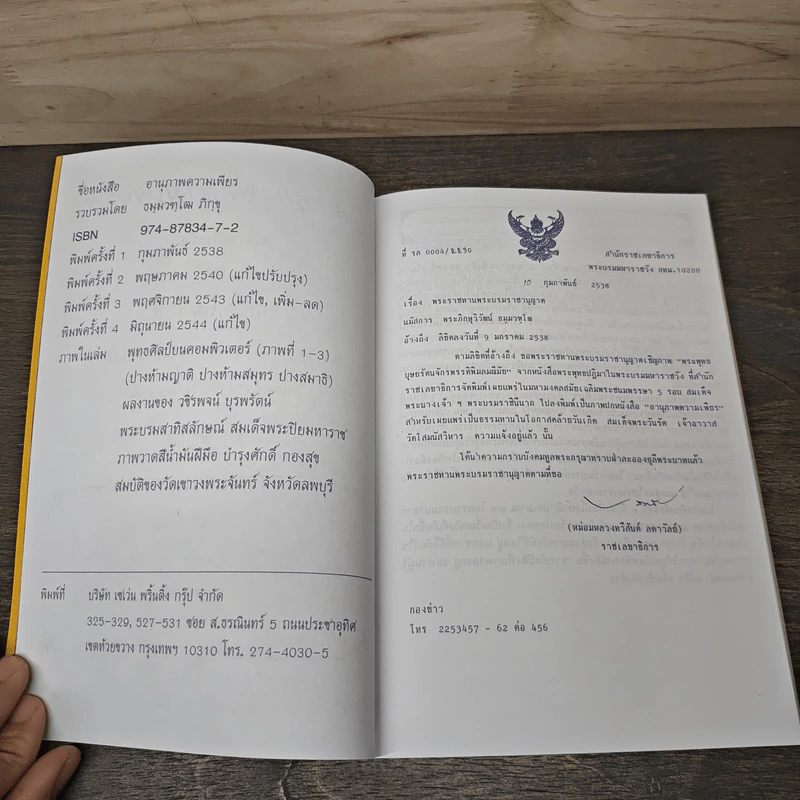 ชื่อหนังสือ อานุภาพความเพียร
รวบรวมโดย ธมฺมวฑฺโฒ ภิกฺขุ
ISBN 974-87834-7-2
พิมพ์ครั้งที่ 1 กุมภาพันธ์ 2538
พิมพ์ครั้งที่ 2 พฤษภาคม 2540 (แก้ไขปรับปรุง)
พิมพ์ครั้งที่ 3 พฤศจิกายน 2543 (แก้ไข, เพิ่ม-ลด)
พิมพ์ครั้งที่ 4 มิถุนายน 2544 (แก้ไข)
ภาพในเล่ม พุทธศิลป์บนคอมพิวเตอร์ (ภาพที่ 1-3)
(ปางห้ามญาติ ปางห้ามสมุทร ปางสมาธิ)
ผลงานของ วชิรพจน์ บุรพรัตน์
พระบรมสาทิสลักษณ์ สมเด็จพระปิยมหาราช
ภาพวาดสีน้ำมันฝีมือ บำรุงศักดิ์ กองสุข
สมบัติของวัดเขาวงพระจันทร์ จังหวัดลพบุรี
พิมพ์ที่ บริษัท เซเว่น พริ้นติ้ง กรุ๊ป จำกัด
325-329, 527-531 ซอย ส.ธรณินทร์ 5 ถนนประชาอุทิศ
เขตห้วยขวาง กรุงเทพฯ 10310 โทร. 274-4030-5
ที่ รล 0004/๒๕๓๐
สำนักราชเลขาธิการ
พระบรมมหาราชวัง กทม.10200
10 กุมภาพันธ์ 2538
เรื่อง พระราชทานพระบรมราชานุญาต
นมัสการ พระภิกษุวิวัฒน์ ธมฺมวฑฺโฒ
อ้างถึง ลิขิตลงวันที่ 9 มกราคม 2538
ตามลิขิตที่อ้างถึง ขอพระราชทานพระบรมราชานุญาตเชิญภาพ "พระพุทธ
บุษยรัตนจักรพรรดิพิมลมณีมัย" จากหนังสือพระพุทธปฏิมาในพระบรมมหาราชวัง ที่สำนัก
ราชเลขาธิการจัดพิมพ์เผยแพร่ในมหามงคลสมัยเฉลิมพระชนมพรรษา 5 รอบ สมเด็จ
พระนางเจ้า ฯ พระบรมราชินีนาถ ไปลงพิมพ์เป็นภาพปกหนังสือ "อานุภาพความเพียร"
สำหรับเผยแพร่เป็นธรรมทานในโอกาสคล้ายวันเกิด สมเด็จพระวันรัต เจ้าอาวาส
วัดโสมนัสวิหาร ความแจ้งอยู่แล้ว นั้น
ได้นำความกราบบังคมทูลพระกรุณาทราบฝ่าละอองธุลีพระบาทแล้ว
พระราชทานพระบรมราชานุญาตตามที่ขอ
(หม่อมหลวงทวีสันต์ ลดาวัลย์)
ราชเลขาธิการ
กองข่าว
โทร 2253457 - 62 ต่อ 456